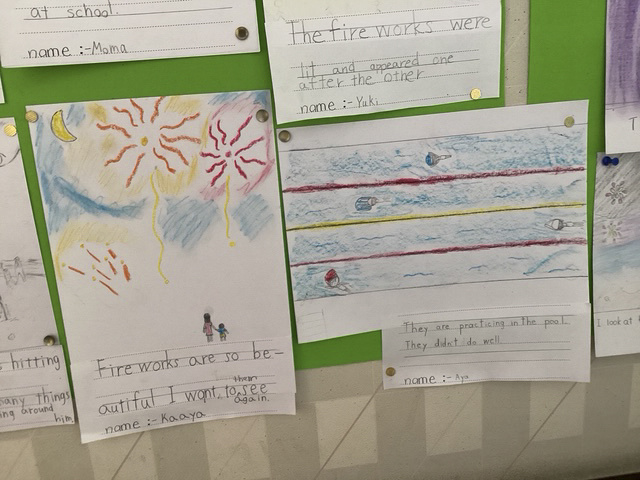 at school.
name :- Moma
The fire works were
lit and appeared one
after the other
name :- Yuki
Fire works are so be-
autiful I want to see
them
again.
name :- Kaaya
They are practicing in the pool.
They didn't do well
name :- Aya
hitting
many things
ing around
him
I look at
T